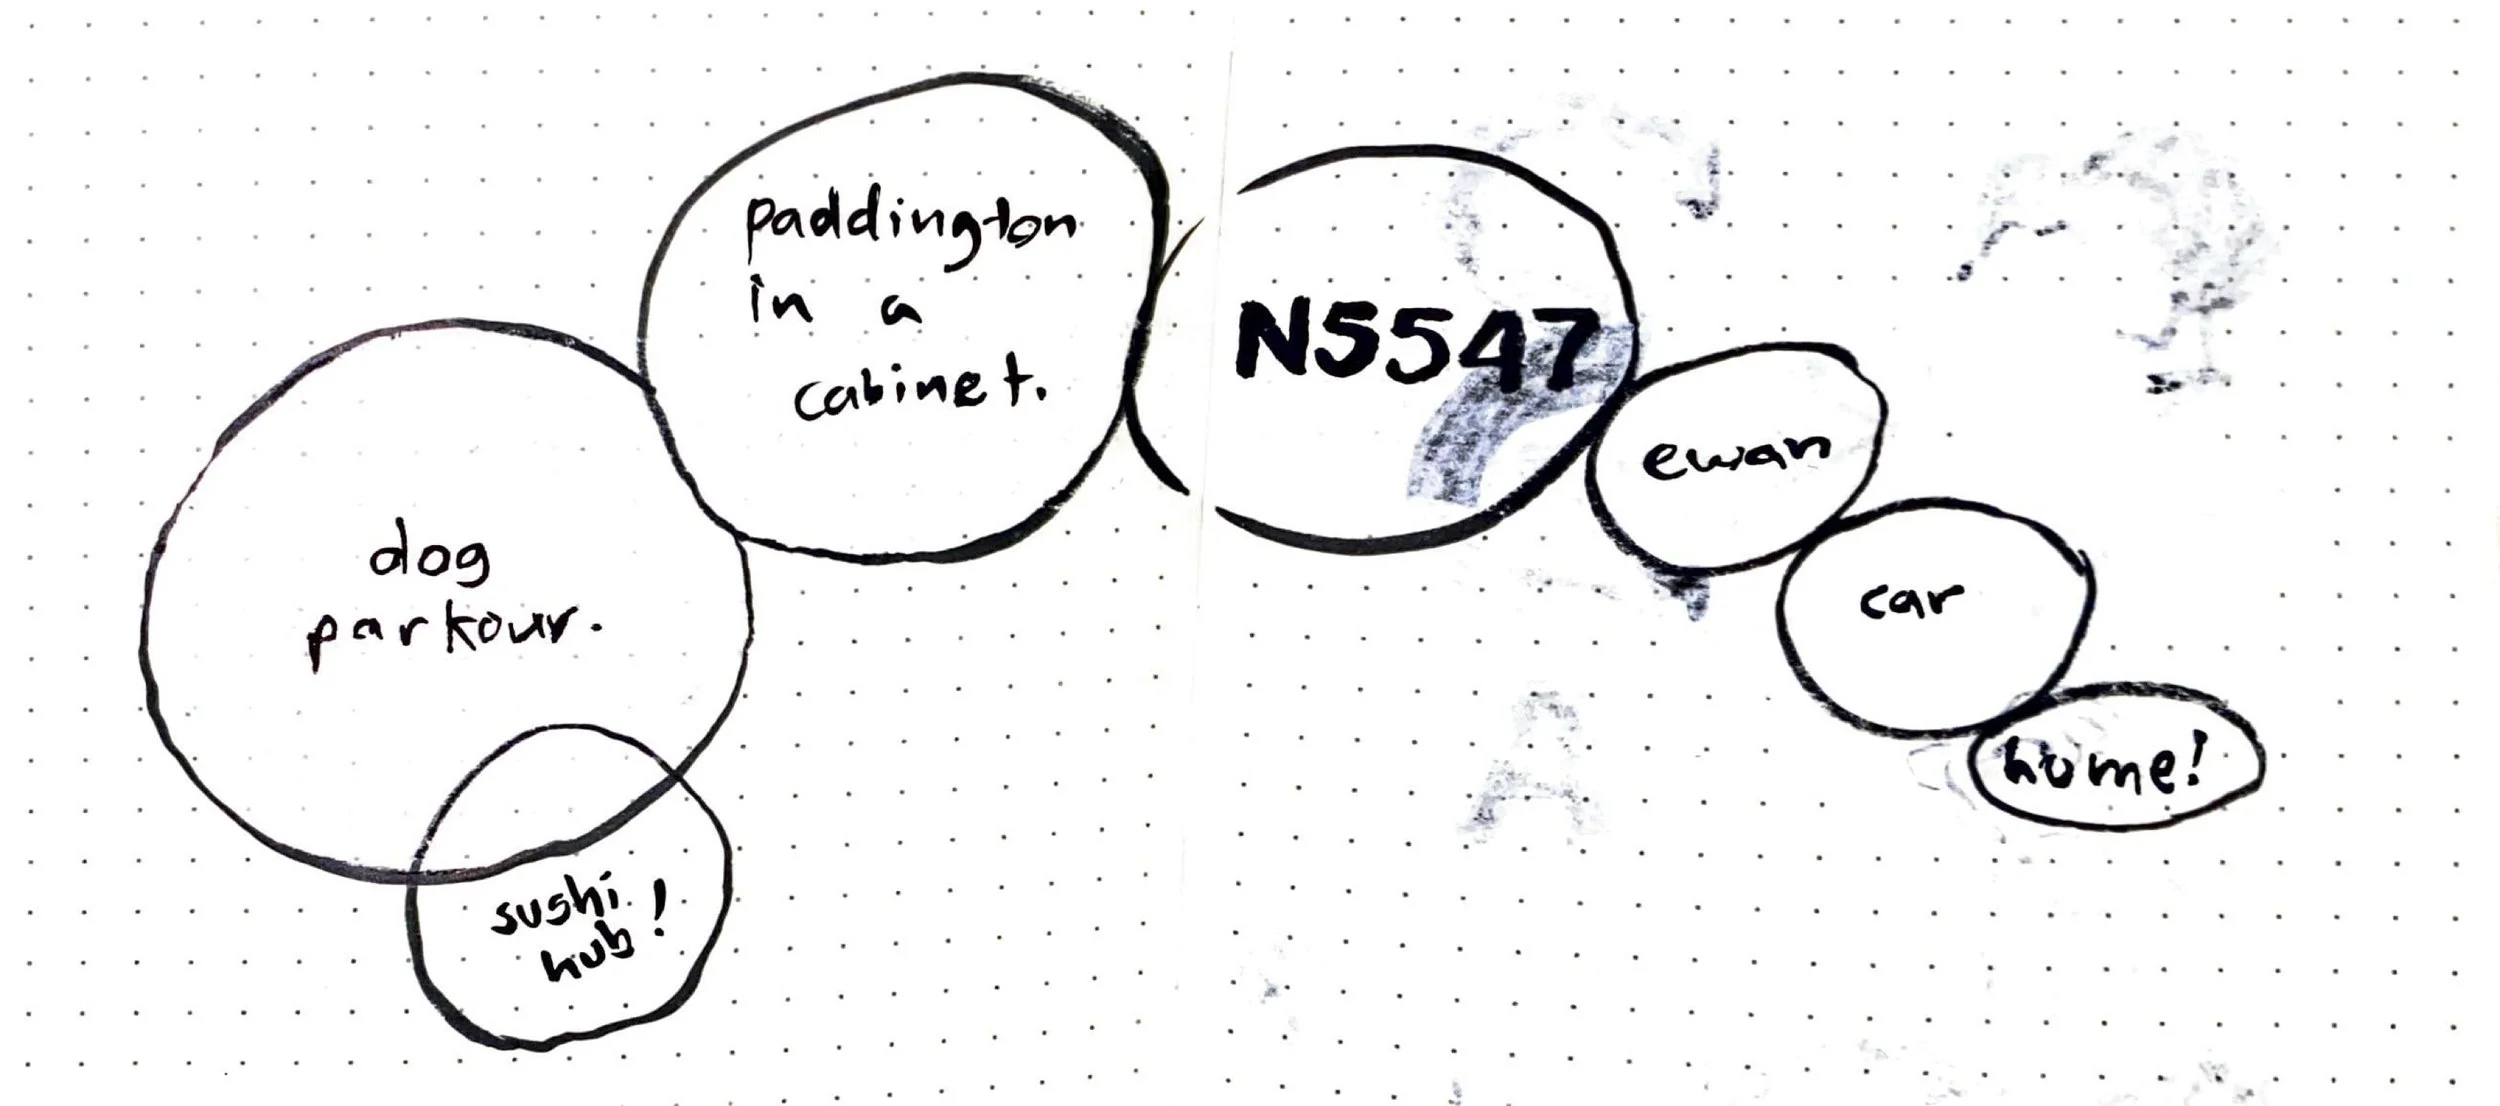 paddington
in a
cabinet.
dog
parkour.
sushi
hub!
N5547
ewan
car
home!